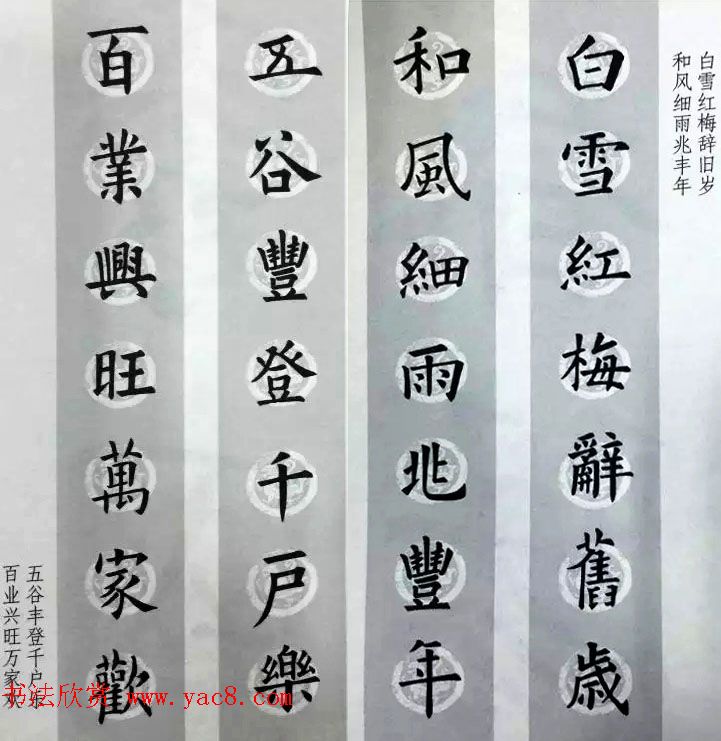 白雪红梅辞旧岁
和风细雨兆丰年
白雪紅梅辭舊歲
和風細雨兆豐年
五谷豐登千户樂
百業興旺萬家歡
五谷丰登千户乐
百业兴旺万家欢
书法欣赏 www.yac8.com